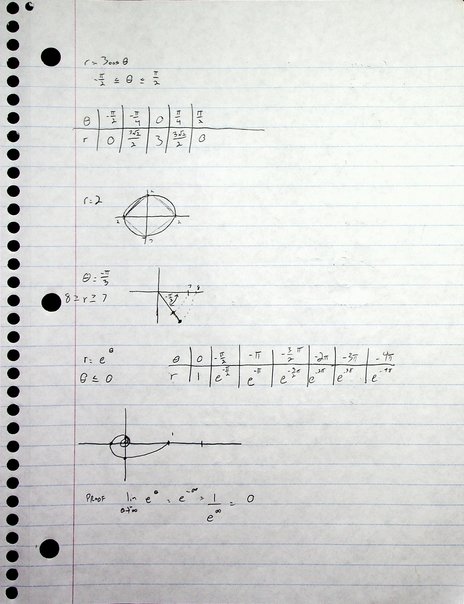 r = 3cos θ
-π/2 ≤ θ ≤ π/2
θ | -π/2 | -π/4 | 0 | π/4 | π/2
r | 0 | 3√2/2 | 3 | 3√2/2 | 0
r = 2
2 2
θ = -π/3
8 ≥ r ≥ 7
-π/3 7 8
r = e^θ
θ ≤ 0
θ | 0 | -π/2 | -π | -3/2 π | -2π | -3π | -4π
r | 1 | e^-π/2 | e^-π | e^-3π/2 | e^-2π | e^-3π | e^-4π
1
PROOF lim θ→-∞ e^θ = e^-∞ = 1/e^∞ = 0